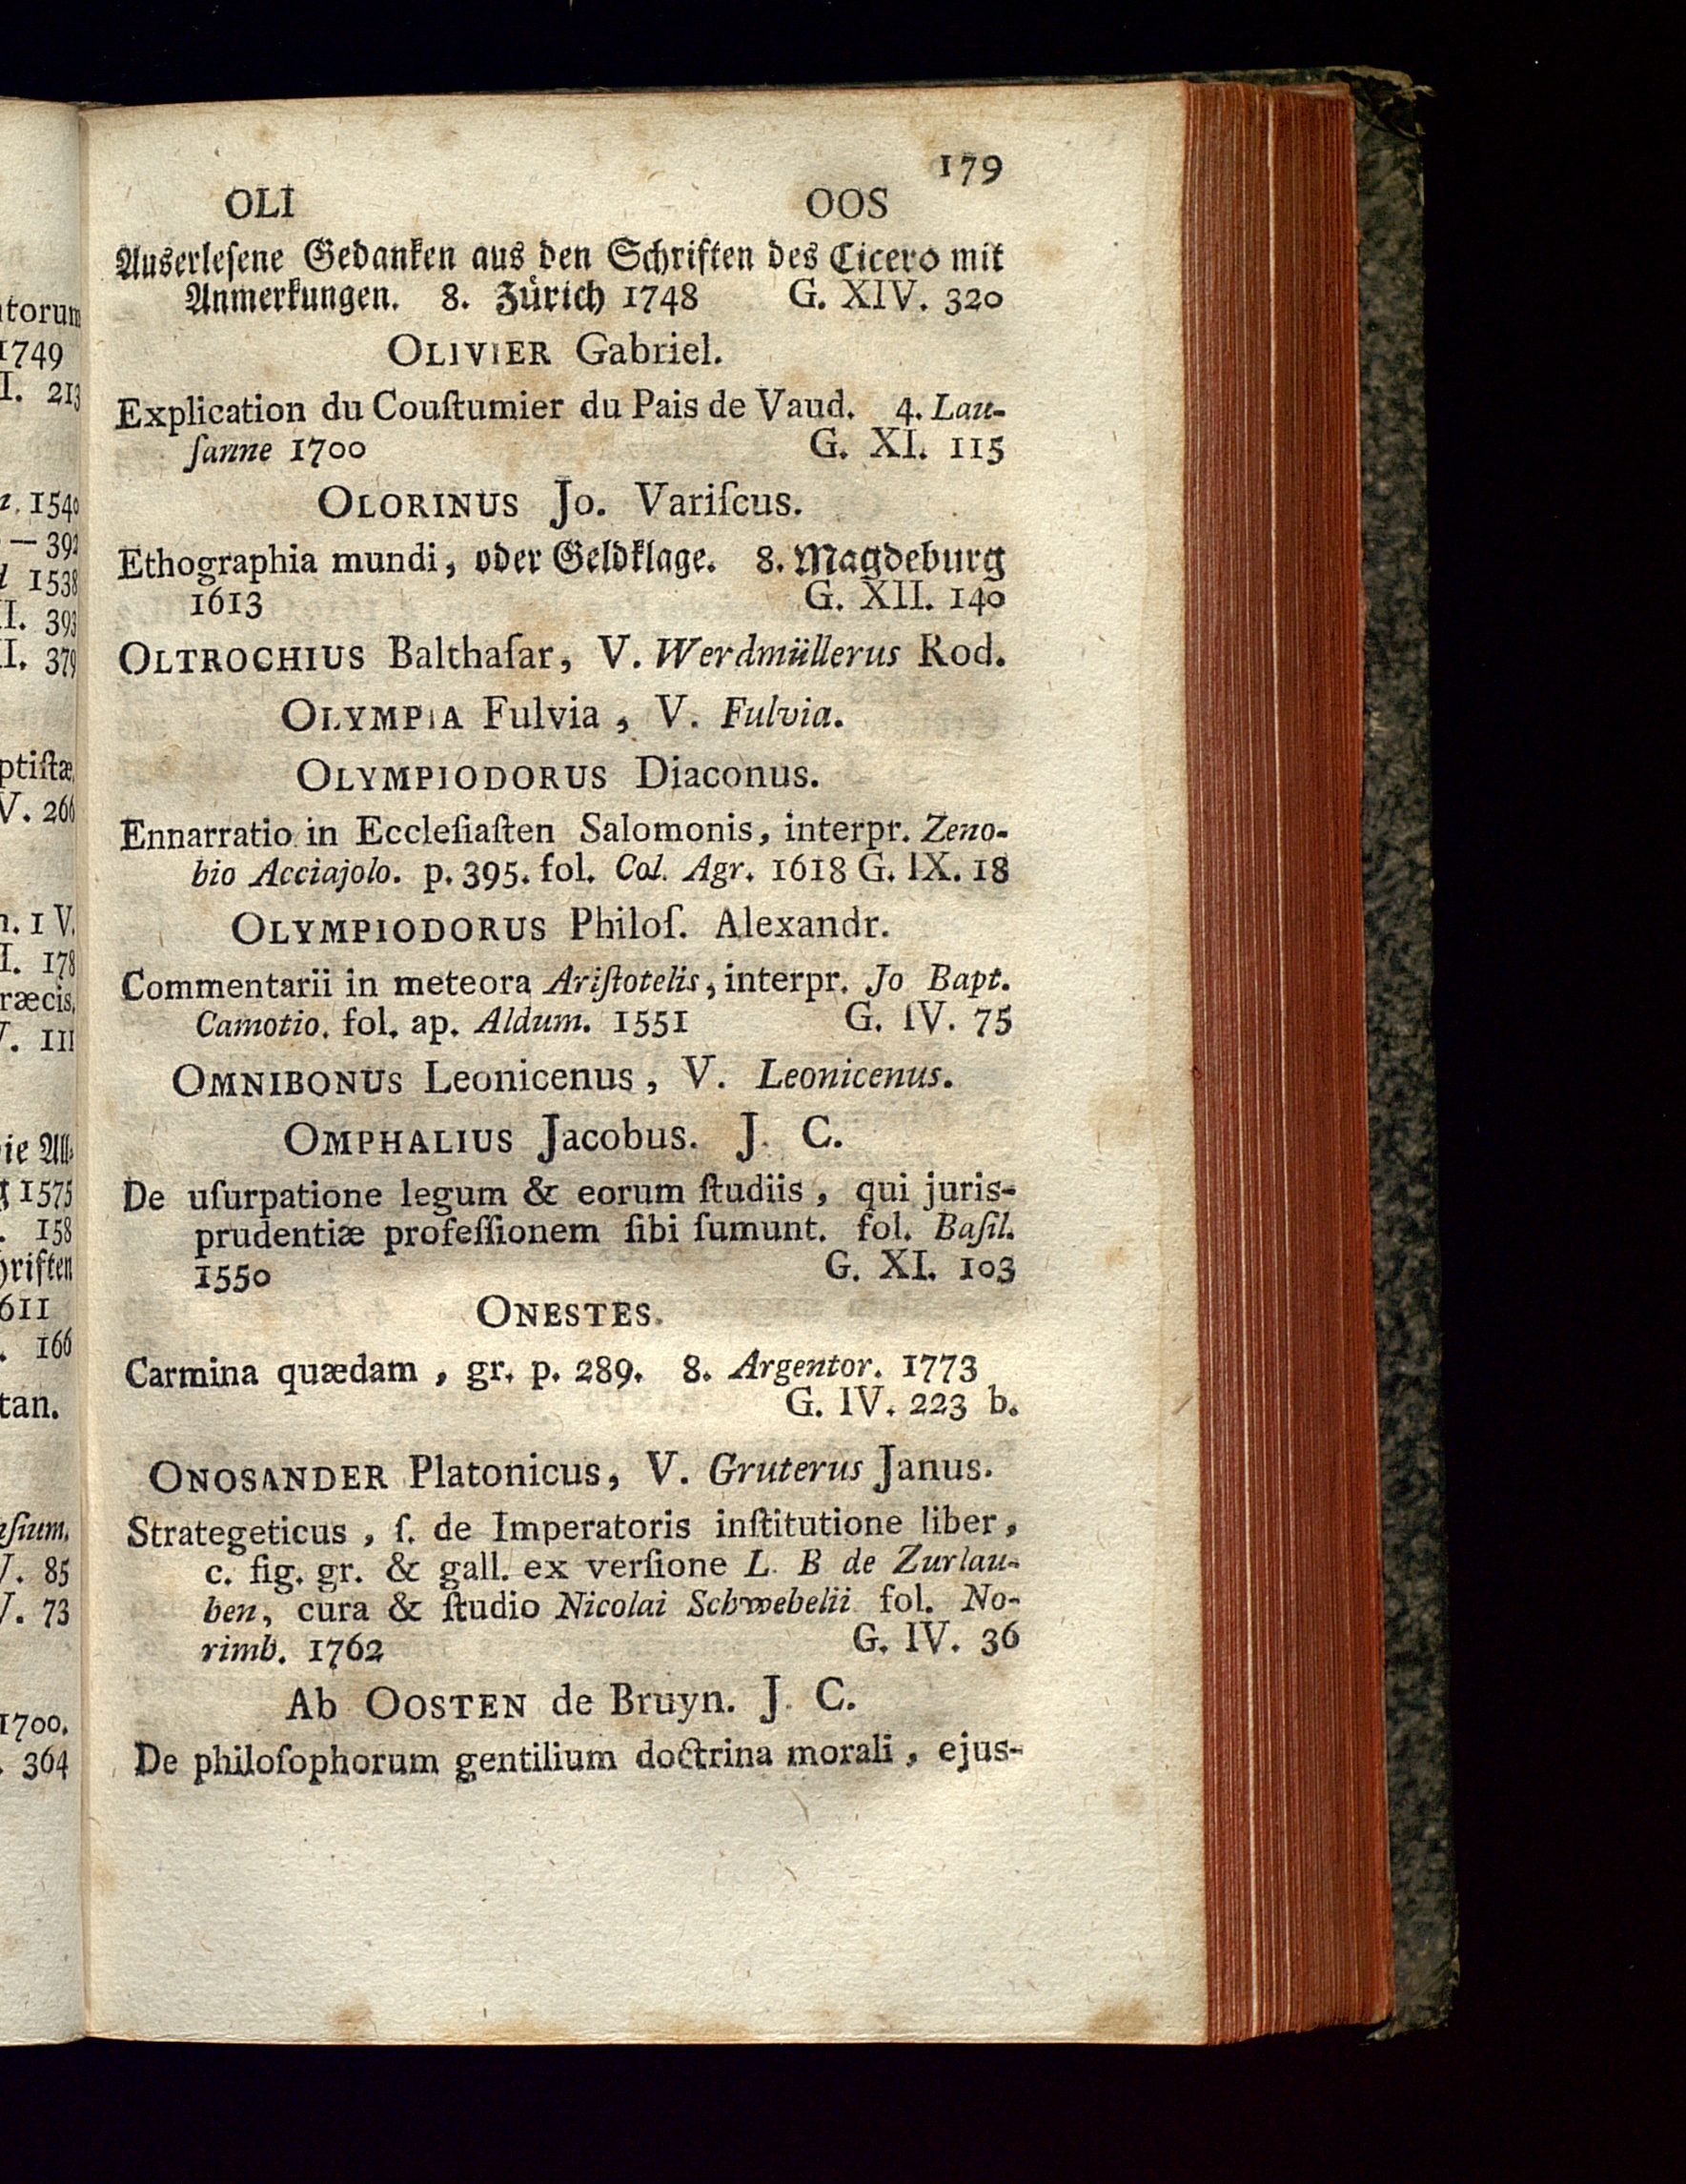 179
OLI OOS
Auserleſene Gedanken aus den Schriften des Cicero mit
Anmerkungen. 8. Zürich 1748 G. XIV. 320
OLIVIER Gabriel.
Explication du Couſtumier du Pais de Vaud. 4. Lau-
ſanne 1700 G. XI. 115
OLORINUS Jo. Variſcus.
Ethographia mundi, oder Geldklage. 8. Magdeburg
1613 G. XII. 140
OLTROCHIUS Balthaſar, V. Werdmüllerus Rod.
OLYMPIA Fulvia, V. Fulvia.
OLYMPIODORUS Diaconus.
Ennarratio in Eccleſiaſten Salomonis, interpr. Zeno-
bio Acciajolo. p. 395. fol. Col. Agr. 1618 G. IX. 18
OLYMPIODORUS Philoſ. Alexandr.
Commentarii in meteora Ariſtotelis, interpr. Jo Bapt.
Camotio. fol. ap. Aldum. 1551 G. IV. 75
OMNIBONUS Leonicenus, V. Leonicenus.
OMPHALIUS Jacobus. J. C.
De uſurpatione legum & eorum ſtudiis, qui juris-
prudentiæ profeſſionem ſibi ſumunt. fol. Baſil.
1550 G. XI. 103
ONESTES.
Carmina quædam, gr. p. 289. 8. Argentor. 1773
G. IV. 223 b.
ONOSANDER Platonicus, V. Gruterus Janus.
Strategeticus, ſ. de Imperatoris inſtitutione liber,
c. fig. gr. & gall. ex verſione L. B de Zurlau-
ben, cura & ſtudio Nicolai Schwebelii fol. No-
rimb. 1762 G. IV. 36
Ab OOSTEN de Bruyn. J. C.
De philoſophorum gentilium doctrina morali, ejus-